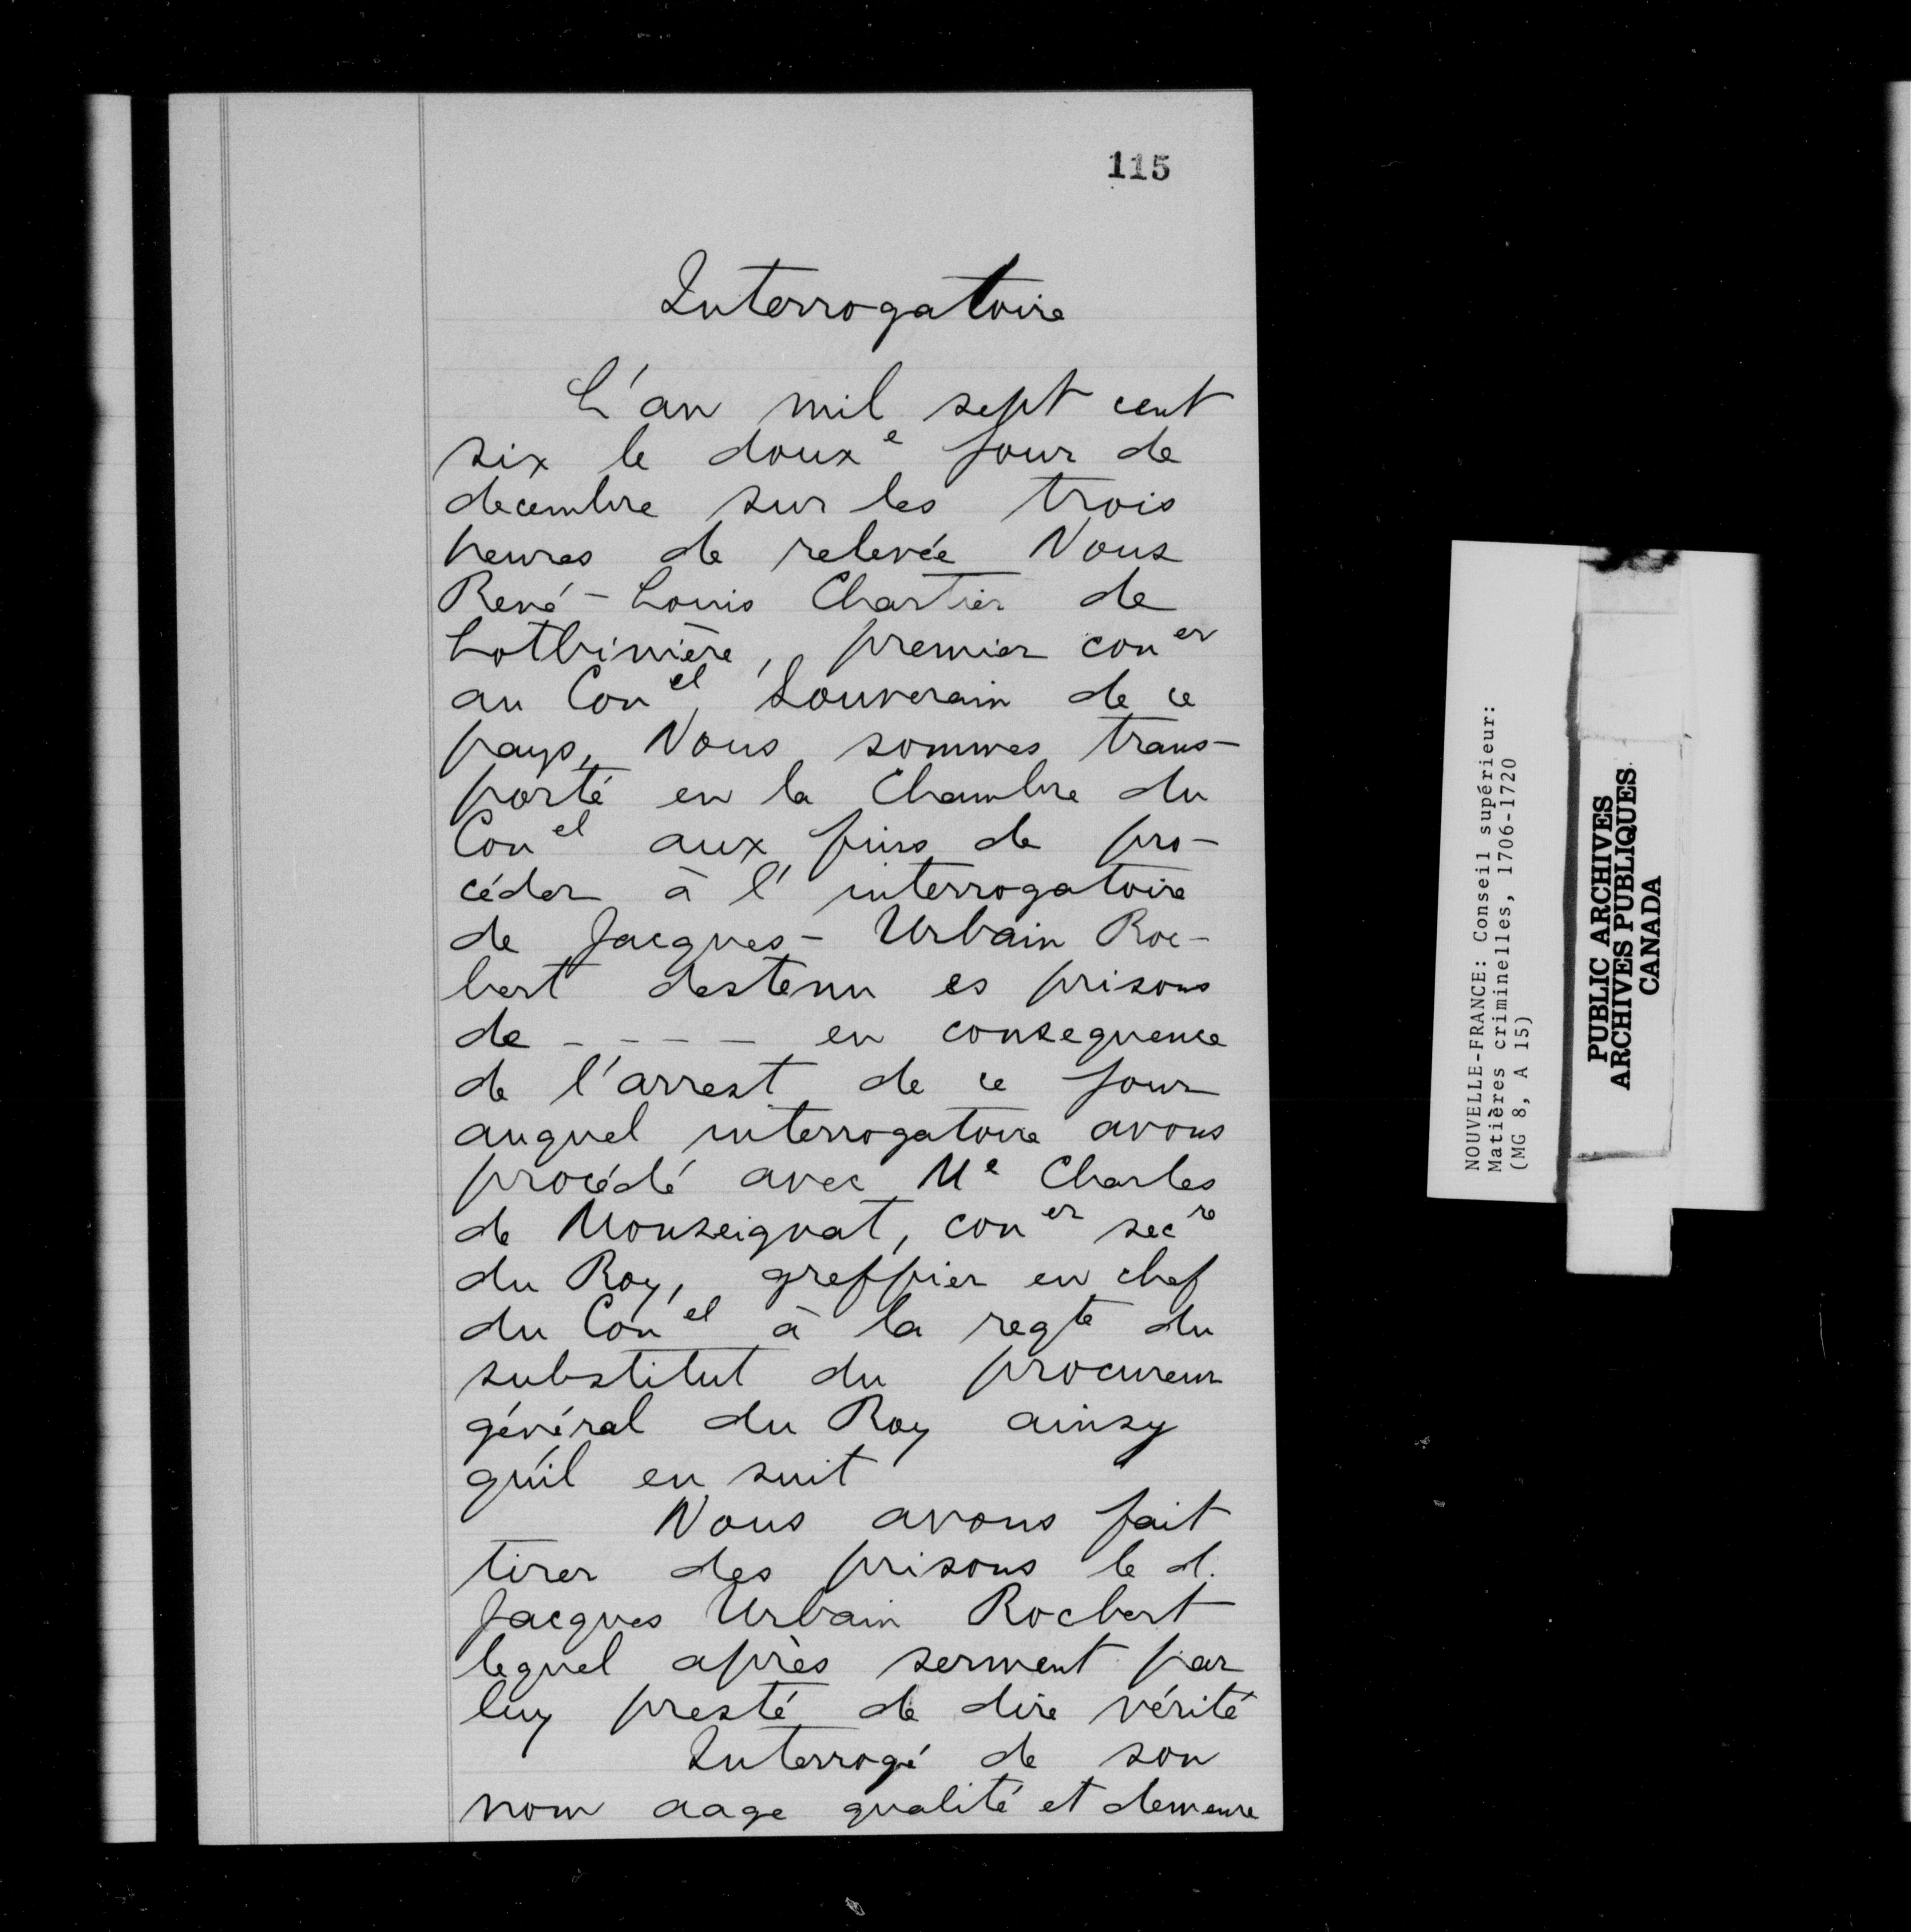 115
Interrogatoire
L'an mil sept cent
six le doux^e jour de
decembre sur les trois
heures de relevée Nous
René-Louis Chartier de
Lotbinière, premier con^er
au Con^el Souverain de ce
pays, Nous sommes trans-
porté en la Chambre du
Con^el aux fins de pro-
céder à l'interrogatoire
de Jacques-Urbain Roc-
bert destenu es prisons
de - - - - en consequence
de l'arrest de ce jour
auquel interrogatoire avons
procédé avec M^e Charles
de Monseignat, con^er sec^re
du Roy, greffier en chef
du Con^el à la reqte du
substitut du procureur
général du Roy ainsy
qu'il en suit
Nous avons fait
tirer des prisons le d.
Jacques Urbain Rocbert
lequel après serment par
luy presté de dire vérité
Interrogé de son
nom aage qualité et demeure
NOUVELLE-FRANCE: Conseil supérieur:
Matières criminelles, 1706-1720
(MG 8, A 15)
PUBLIC ARCHIVES
ARCHIVES PUBLIQUES
CANADA